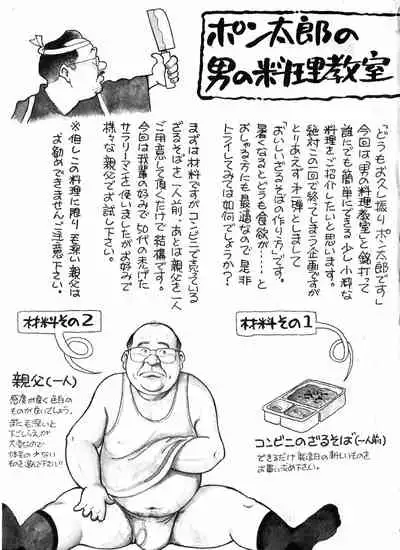 ポン太郎の
男の料理教室
「どうもお久し振りポン太郎です」
今回は「男の料理教室」と銘打って
誰にでも簡単にできる少し小粋な
料理をご紹介したいと思います。
絶対この一回で終ってしまう企画ですが
とりあえず本題としまして
「おいしいざるそばの作り方」です。
暑くなるとどうも食欲が……と
おっしゃる方にも最適なので是非
トライしてみては如何でしょうか?
まずは材料ですがコンビニで売っている
ざるそばを一人前、あとは親父を一人
ご用意して頂くだけで結構です。
今回は我輩の好みで50代の未けた
サラリーマンを使いましたがお好みで
様々な親父でお試し下さい。
※但しこの料理に限り毛深い親父は
お勧めできませんご注意下さい。
材料その1
コンビニのざるそば(一人前)
できるだけ製造日の新しいものを
お買い求め下さい。
材料その2
親父(一人)
感度が良く色白の
ものが良いでしょう。
また毛深いと
下ごしらえが
大変なので
体毛の少ない
ものを選んで下さい!!